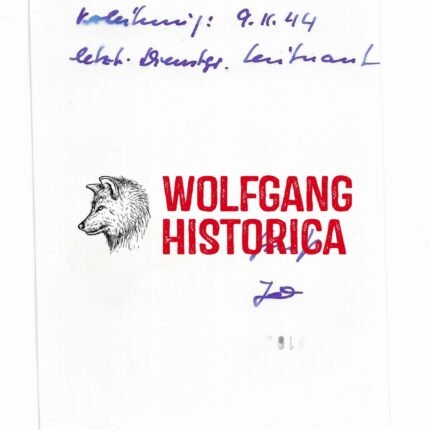 Verleihung: 9.11.44
letzt. Dienstgr. Leutnant
WOLFGANG
HISTORICA